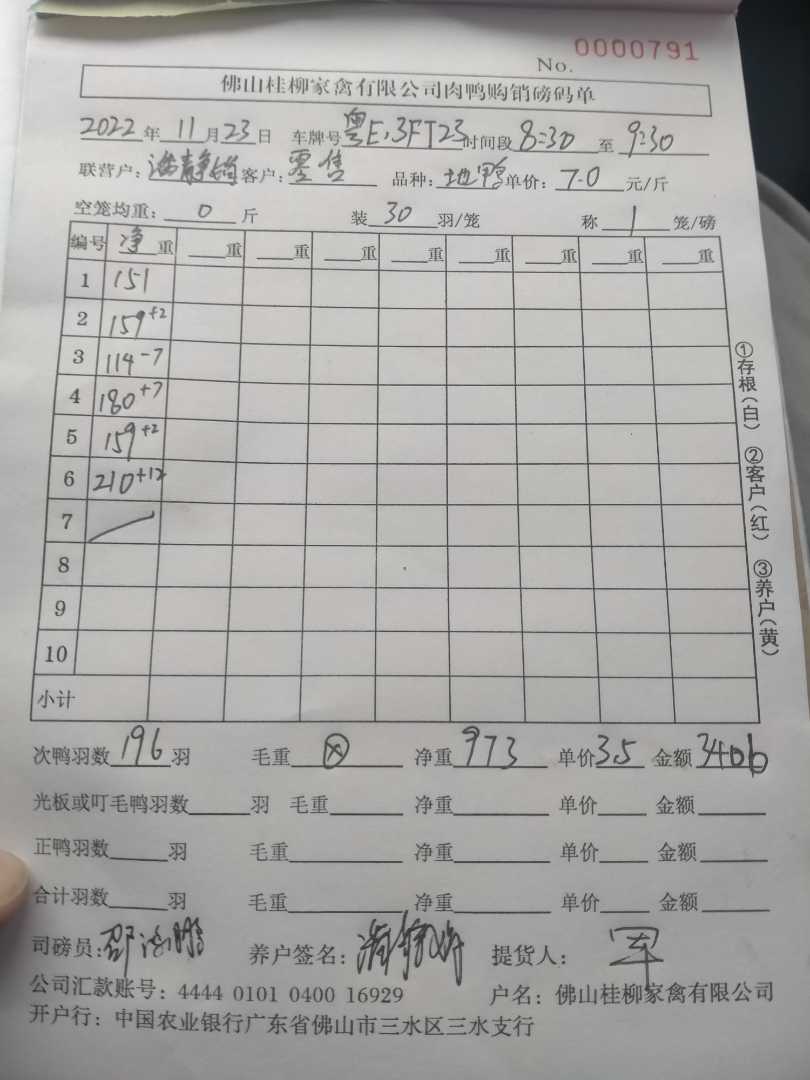 No. 0000791
佛山桂柳家禽有限公司肉鸭购销磅码单
2022年 11月23日 车牌号粤E,3FT23时间段8:30至9:30
联营户: 客户:零售 品种:地鸭 单价:7.0元/斤
空笼均重: 0 斤 装 30 羽/笼 称 1 笼/磅
编号 净重 重 重 重 重 重 重 重 重
1 151
2 159+2
3 114-7
4 180+7
5 159+2
6 210+12
7
8
9
10
小计
次鸭羽数 196 羽 毛重 ⊗ 净重 973 单价3.5 金额3406
光板或叮毛鸭羽数 羽 毛重 净重 单价 金额
正鸭羽数 羽 毛重 净重 单价 金额
合计羽数 羽 毛重 净重 单价 金额
司磅员: 养户签名: 提货人:
公司汇款账号: 4444 0101 0400 16929 户名: 佛山桂柳家禽有限公司
开户行: 中国农业银行广东省佛山市三水区三水支行
①存根(白) ②客户(红) ③养户(黄)